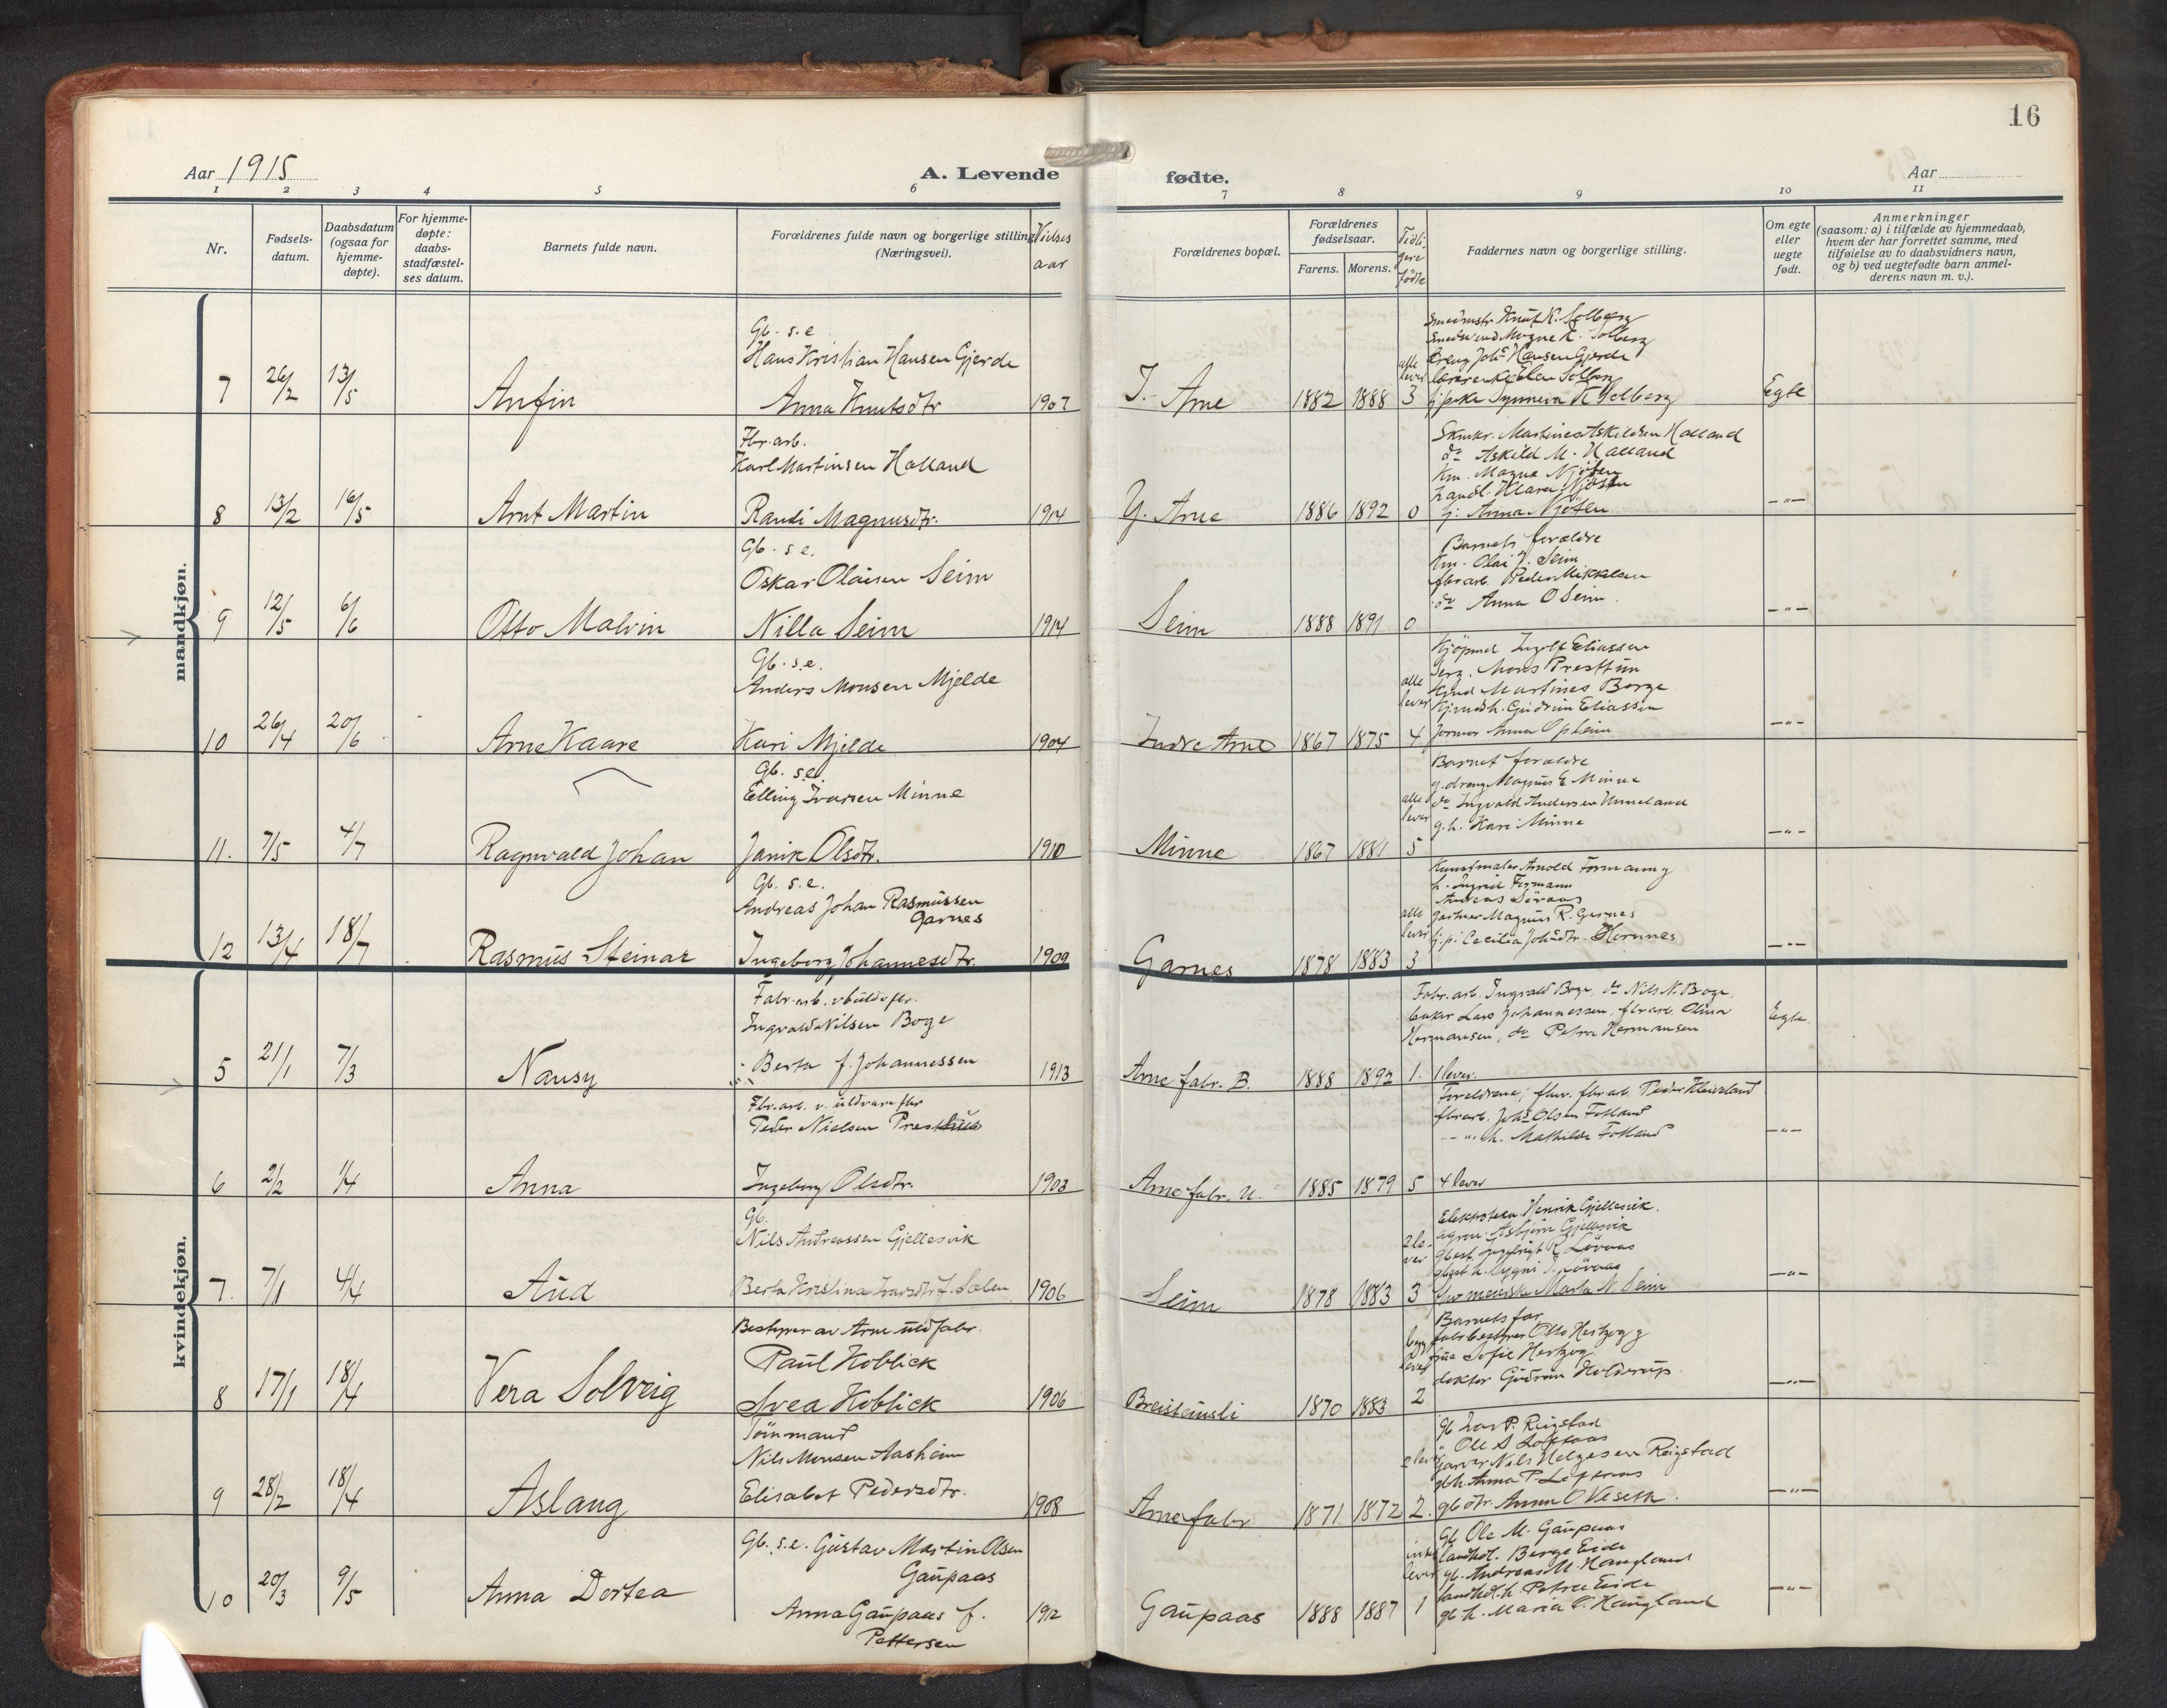 16
Aar 1915
A. Levende
fødte.
Aar
1 2 3 4 5 6 7 8 9 10 11
Nr.
Fødsels-
datum.
Daabsdatum
(ogsaa for
hjemme-
døpte).
For hjemme-
døpte:
daabs-
stadfæstel-
ses datum.
Barnets fulde navn.
Forældrenes fulde navn og borgerlige stilling
(Næringsvei).
Vielses
aar
Forældrenes bopæl.
Forældrenes
fødselsaar.
Farens. Morens.
Tidli-
gere
fødte
Faddernes navn og borgerlige stilling.
Om egte
eller
uegte
født.
Anmerkninger
(saasom: a) i tilfælde av hjemmedaab,
hvem der har forrettet samme, med
tilføielse av to daabsvidners navn,
og b) ved uegtefødte barn anmel-
derens navn m. v.).
mandkjøn.
Gb. s.e
Hans Kristian Hansen Gjerde
7 26/2 13/5 Anfin Anna Knutsdtr 1907
I. Arne 1882 1888 alle lever 3
Smedmstr Knut K. Solberg
Smedsvend Mogne K. Solberg
dreng Johs Hansen Gjerde
Solberg
pike Synneva K Solberg
Egte
Fbr. arb.
Karl Martinsen Halland
8 13/2 16/5 Arnt Martin Randi Magnusdtr. 1914
Y. Arne 1886 1892 0
Skmkr. Martines Askildsen Halland
do Askild M. Halland
Km. Magne Njøten
handl. Klara Njøten
Anna Njøten
-"-
Gb. s.e.
Oskar Olaisen Seim
9 12/5 6/6 Otto Malvin Nilla Seim 1914
Seim 1888 1891 0
Barnets forældre
Km. Olai J. Seim
fbrarb. Peder Mikkelsen
do Anna O Seim.
-"-
Gb. s.e.
Anders Monsen Mjelde
10 26/4 20/6 Arne Kaare Kari Mjelde 1904
Indre Arne 1867 1875 alle lever 4
Kjøpmd Ingolf Eliassen
Serg. Mons Presttun
Kjmd Martines Borge
Kjmdsh. Gudrun Eliassen
Jormor Anna Opheim
-"-
Gb. s.e.
Elling Ivarsen Minne
11. 7/5 4/7 Ragnvald Johan Janik Olsdtr. 1910
Minne 1867 1881 alle lever 5
Barnet forældre
g.dreng Magnus E Minne
do Ingvald Andersen Unneland
g.h. Kari Minne
-"-
Gb. s.e.
Andreas Johan Rasmussen
Garnes
12 13/4 18/7 Rasmus Steinar Ingeborg Johannesdtr. 1909
Garnes 1878 1883 alle lever 3
Kunstmaler Arnold Formann og
h. Ingrid Formann
Andreas Søraas
gartner Magnus R. Garnes
Cecilia Johsdtr. Hornnes
-"-
kvindekjøn.
Fabr. arb. v uldvfbr.
Ingvald Nilsen Boge
5 21/1 7/3 Nansy Berta f. Johannessen 1913
Arne fabr. B. 1888 1892 1. 1 lever.
Fabr. arb. Ingvald Boge, do Nils N. Boge,
baker Lars Johannessen, fbrarb. Olina
Hermansen, do Petra Hermansen
Egte
Fbr. arb. v. uldvare fbr
Peder Nielsen Presthus
6 2/2 1/4 Anna Ingeborg Olsdtr. 1903
Arne fabr. U. 1885 1879 5 4 lever
Foreldrene; fhv. fbrarb. Peder Kleiveland
fbrarb. Johs Olsen Fotland
-"- h. Mathilde Fotland
-"-
Gb.
Nils Andreassen Gjellesvik
7. 7/1 4/4 Aud Berta Kristina Ivarsdtr f. Salen 1906
Seim 1878 1883 2 lever 3
Elektrotekn. Henrik Gjellesvik.
agron. Asbjørn Gjellesvik
Løvaas
Løvaas
Marta N. Seim
-"-
Bestyrer av Arne uldfabr.
Paul Koblick
8 17/1 18/4 Vera Solveig Svea Koblick 1906
Breisteinsli 1870 1883 begge lever 2
Barnets far
fabrbestyrer Otto Hertzog og
frue Sofie Hertzog
doktor Gudrun Holdrup.
-"-
Tømmand
Nils Monsen Aasheim
9 28/2 18/4 Aslaug Elisabet Pedersdtr. 1908
Arne fabr. 1871 1872 2 lever 2.
gb Lars P. Reigstad
Ole S Loftaas
garver Nils Helgesen Reigstad
gbh. Anna P. Loftaas
gb dtr. Anna O Veseth.
-"-
Gb. s.e. Gustav Martin Olsen
Gaupaas
10 20/3 9/5 Anna Dortea Anna Gaupaas f. 1912
Pettersen
Gaupaas 1888 1887 intet lever 1
Gb Ole M. Gaupaas
landhdl. Berge Eide
gb. Andreas M. Haugland
landhdl.h. Petra Eide
gb h. Maria P. Haugland
-"-